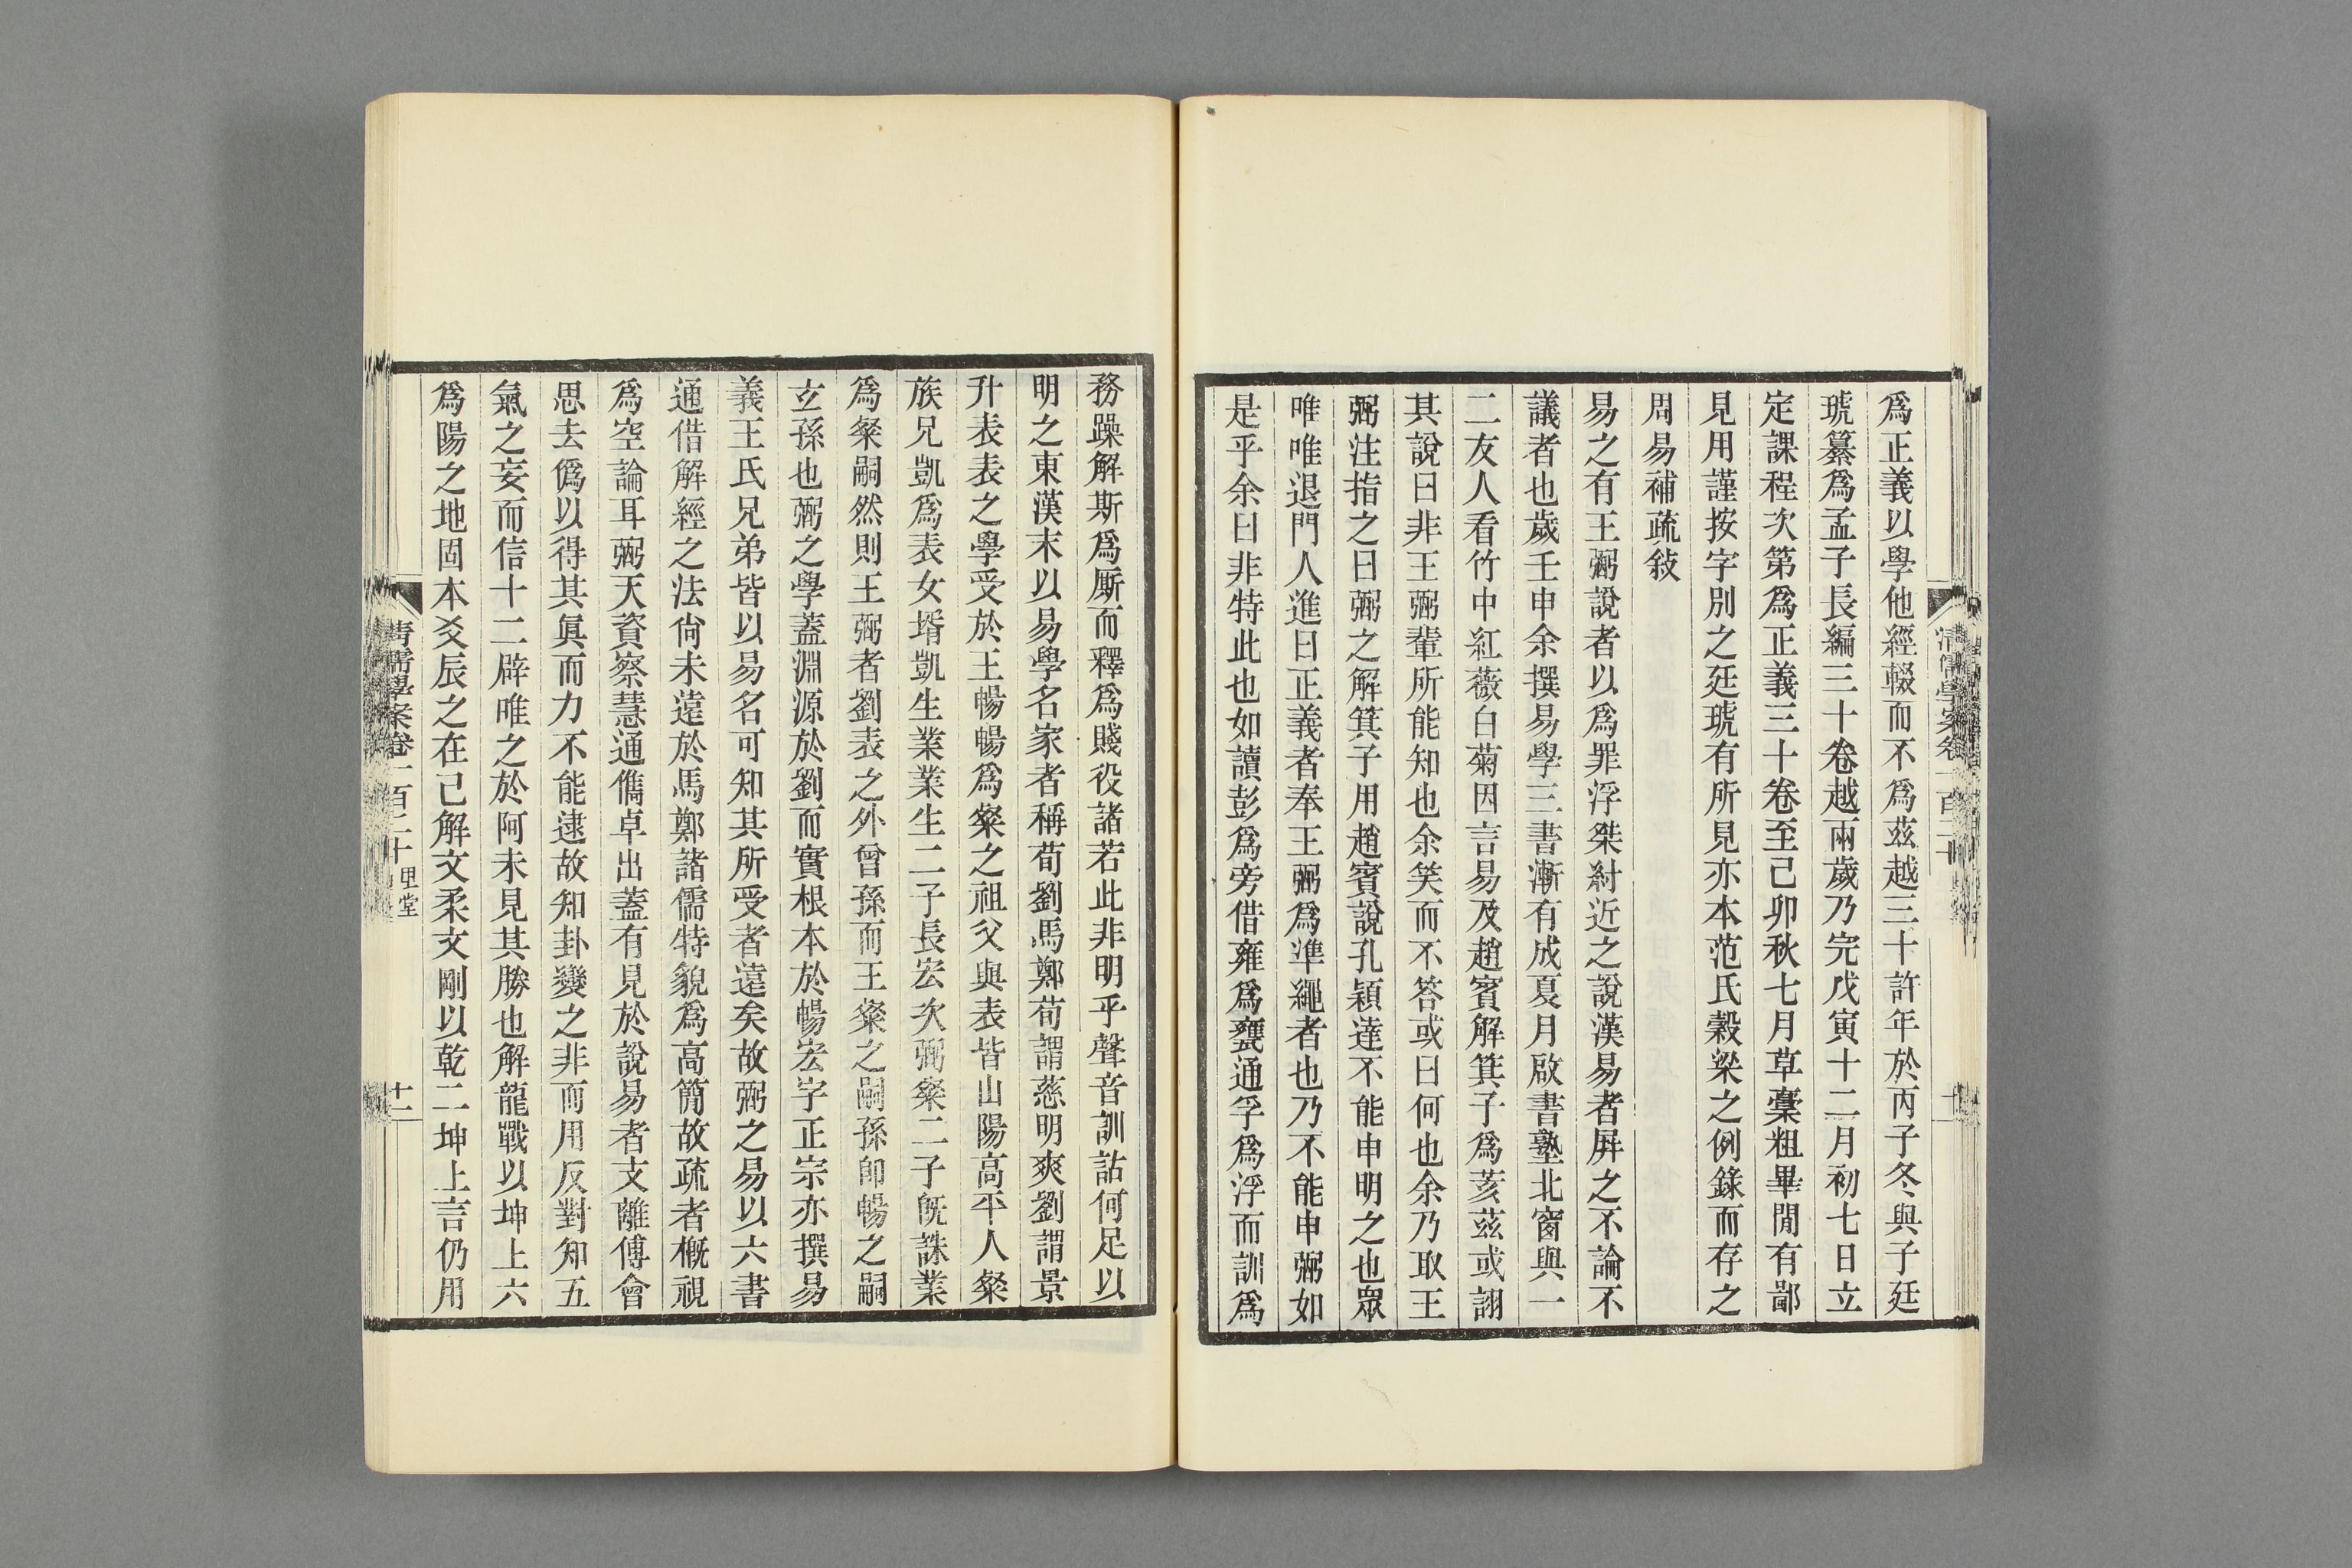 爲正義以學他經輟而不爲茲越三十許年於丙子冬與子廷
琥纂爲孟子長編三十卷越兩歲乃完戊寅十二月初七日立
定課程次第爲正義三十卷至己卯秋七月草稾粗畢閒有鄙
見用謹按字別之廷琥有所見亦本范氏穀梁之例錄而存之
周易補疏敍
易之有王弼說者以爲罪浮桀紂近之說漢易者屏之不論不
議者也歲壬申余撰易學三書漸有成夏月啟書塾北窗與一
二友人看竹中紅薇白菊因言易及趙賓解箕子爲荄茲或詡
其說曰非王弼輩所能知也余笑而不答或曰何也余乃取王
弼注指之曰弼之解箕子用趙賓說孔穎達不能申明之也眾
唯唯退門人進曰正義者奉王弼爲準繩者也乃不能申弼如
是乎余曰非特此也如讀彭爲旁借雍爲甕通孚爲浮而訓爲
務躁解斯爲厮而釋爲賤役諸若此非明乎聲音訓詁何足以
明之東漢末以易學名家者稱荀劉馬鄭荀謂慈明爽劉謂景
升表表之學受於王暢暢爲粲之祖父與表皆山陽高平人粲
族兄凱爲表女壻凱生業業生二子長宏次弼粲二子旣誅業
爲粲嗣然則王弼者劉表之外曾孫而王粲之嗣孫卽暢之嗣
玄孫也弼之學蓋淵源於劉而實根本於暢宏字正宗亦撰易
義王氏兄弟皆以易名可知其所受者遠矣故弼之易以六書
通借解經之法尙未遠於馬鄭諸儒特貌爲高簡故疏者槪視
爲空論耳弼天資察慧通儁卓出蓋有見於說易者支離傅會
思去僞以得其眞而力不能逮故知卦變之非而用反對知五
氣之妄而信十二辟唯之於阿未見其勝也解龍戰以坤上六
爲陽之地固本爻辰之在己解文柔文剛以乾二坤上言仍用
清儒學案卷一百二十 里堂
十一